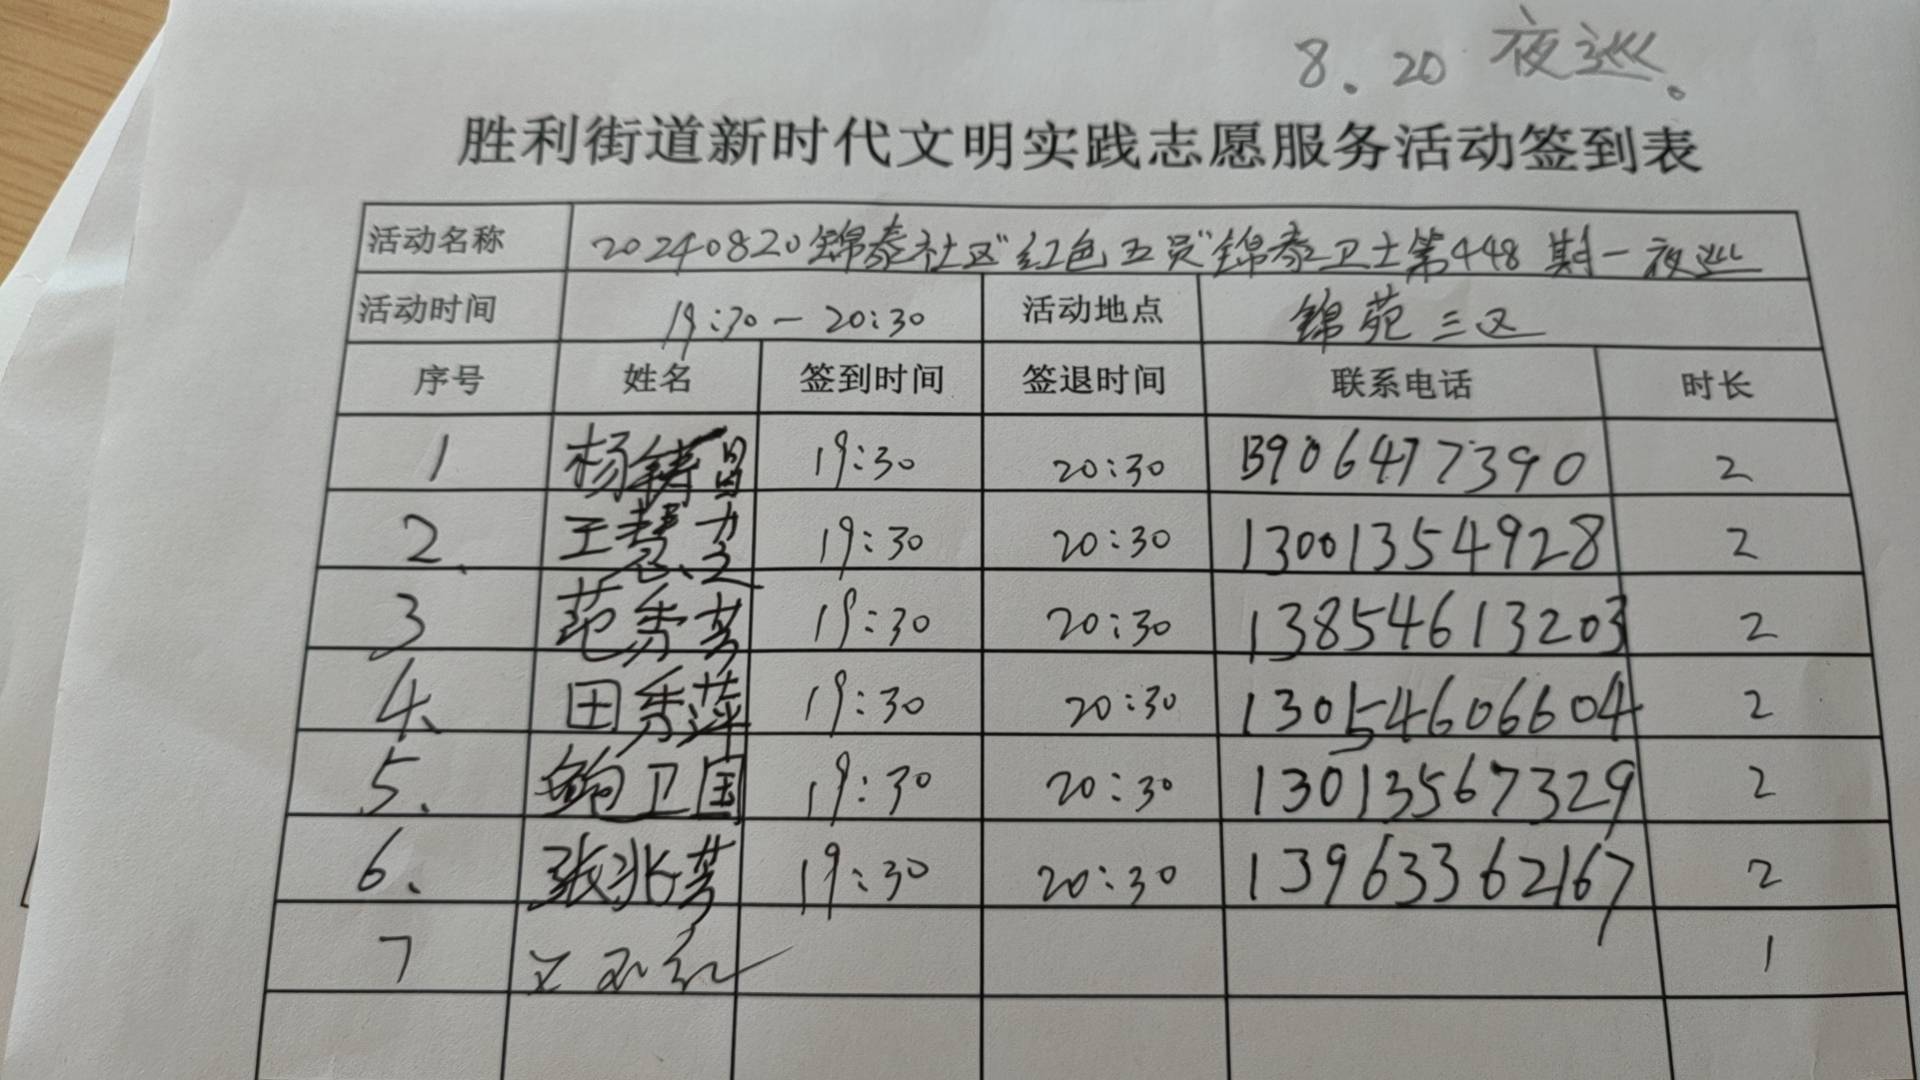 8.20 夜巡.
胜利街道新时代文明实践志愿服务活动签到表
活动名称 20240820锦泰社区"红色五员"锦泰卫士第448期一夜巡
活动时间 19:30-20:30 活动地点 锦苑三区
序号 姓名 签到时间 签退时间 联系电话 时长
1 杨 昌 19:30 20:30 13906477390 2
2、 王慧 19:30 20:30 13001354928 2
3 范秀芳 19:30 20:30 13854613203 2
4、 田秀萍 19:30 20:30 13054606604 2
5、 鲍卫国 19:30 20:30 13013567329 2
6、 张兆芳 19:30 20:30 13963362167 2
7 红 1